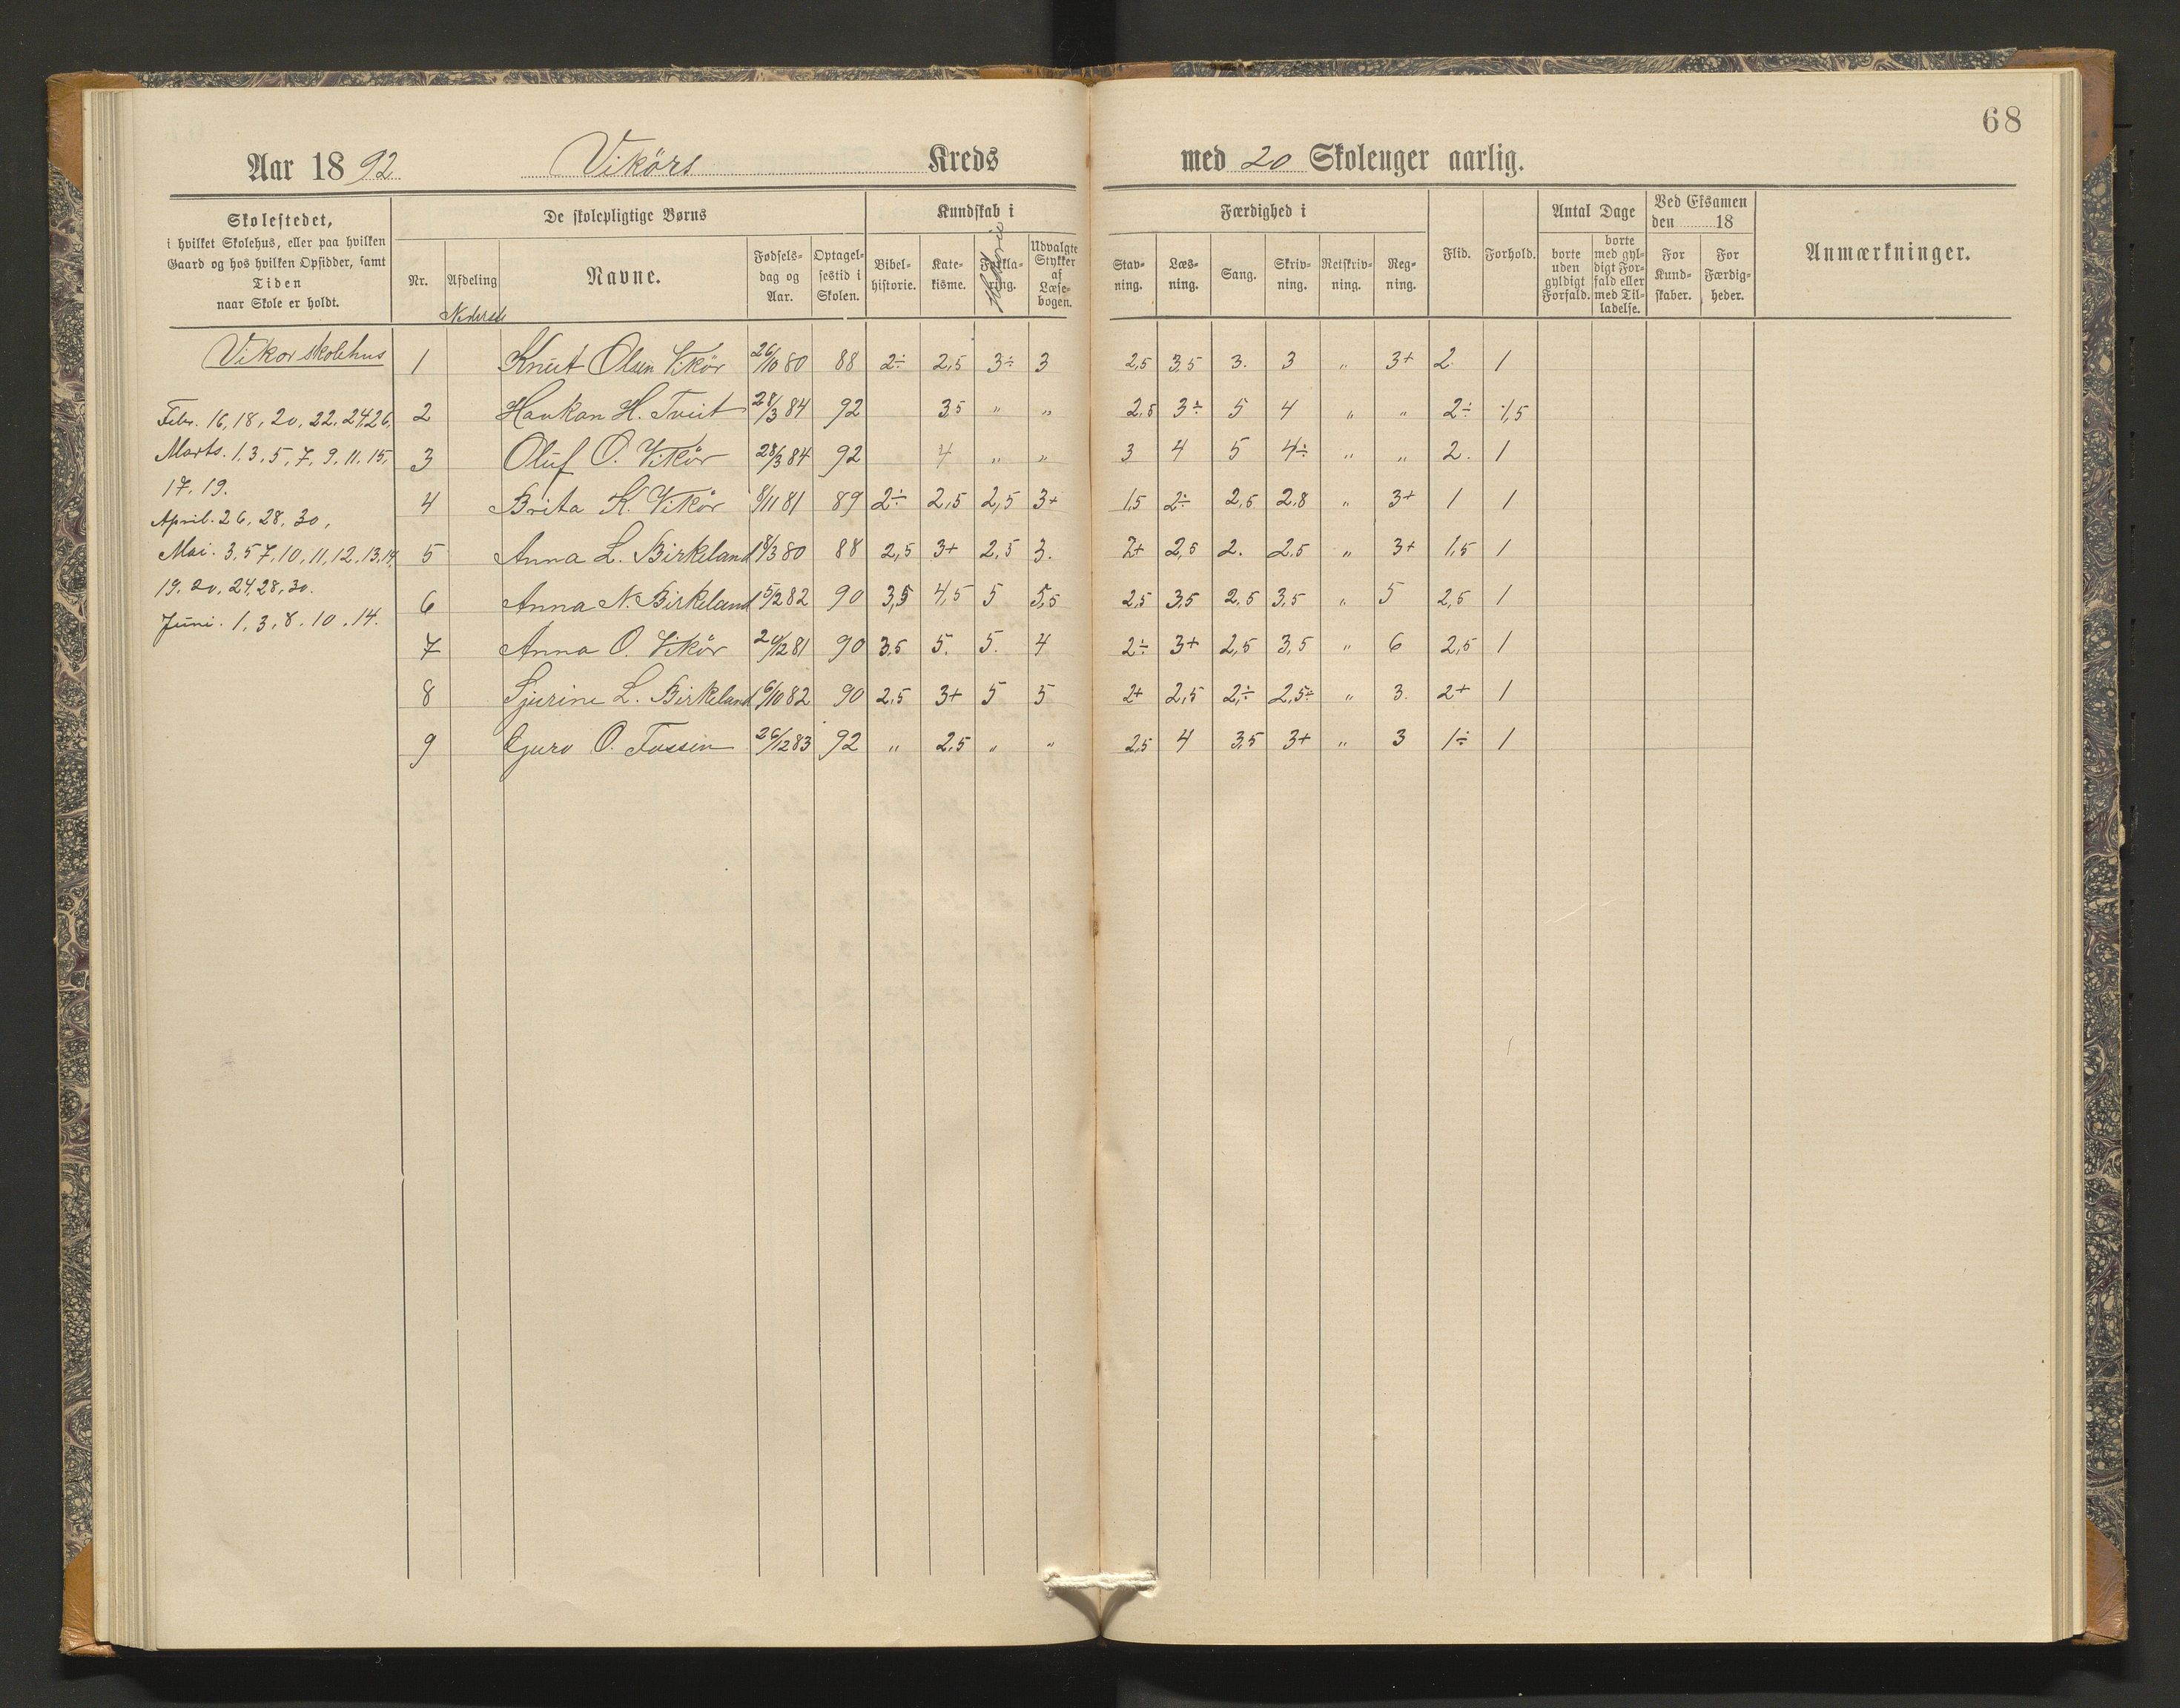 68
Aar 18 92 Vikörs Kreds med 20 Skoleuger aarlig.
Skolestedet,
i hvilket Skolehus, eller paa hvilken
Gaard og hos hvilken Opsidder, samt
Tiden
naar Skole er holdt.
De skolepligtige Børns
Nr.
Afdeling
Nederste
Navne.
Fødsels-
dag og
Aar.
Optagel-
sestid i
Skolen.
Kundskab i
Bibel-
historie.
Kate-
kisme.
Forkla-
ring.
Historie
Udvalgte
Stykker
af
Læse-
bogen.
Færdighed i
Stav-
ning.
Læs-
ning.
Sang.
Skriv-
ning.
Retskriv-
ning.
Reg-
ning.
Flid.
Forhold.
Antal Dage
borte
uden
gyldigt
Forfald.
borte
med gyl-
digt For-
fald eller
med Til-
ladelse.
Ved Eksamen
den 18
For
Kund-
skaber.
For
Færdig-
heder.
Anmærkninger.
Vikør skolehus
Febr. 16, 18, 20, 22, 24, 26,
Marts. 1, 3, 5, 7, 9, 11, 15,
17, 19.
April. 26, 28, 30,
Mai. 3, 5 7, 10, 11, 12, 13, 14,
19, 20, 24, 28, 30.
Juni. 1, 3, 8, 10, 14.
1 Knut Olsen Vikör 26/10 80 88 2÷ 2,5 3÷ 3 2,5 3,5 3. 3 " 3+ 2. 1
2 Haukan H. Tveit 28/3 84 92 35 " " 2,5 3÷ 5 4 " " 2÷ 1,5
3 Oluf O. Vikör 28/3 84 92 4 " " 3 4 5 4÷ " " 2. 1
4 Brita K. Vikör 8/11 81 89 2÷ 2,5 2,5 3+ 1,5 2÷ 2,5 2,8 " 3+ 1 1
5 Anna L. Birkeland 18/3 80 88 2,5 3+ 2,5 3. 2+ 2,5 2. 2,5 " 3+ 1,5 1
6 Anna N. Birkeland 5/2 82 90 3,5 4,5 5 5,5 2,5 3,5 2,5 3,5 " 5 2,5 1
7 Anna O. Vikör 24/12 81 90 3,5 5. 5. 4 2÷ 3+ 2,5 3,5 " 6 2,5 1
8 Sjurine L. Birkeland 6/10 82 90 2,5 3+ 5 5 2+ 2,5 2,÷ 2,5÷ " 3. 2+ 1
9 Gjuro O. Fossen 26/12 83 92 " 2,5 " " 2,5 4 3,5 3+ " 3 1÷ 1